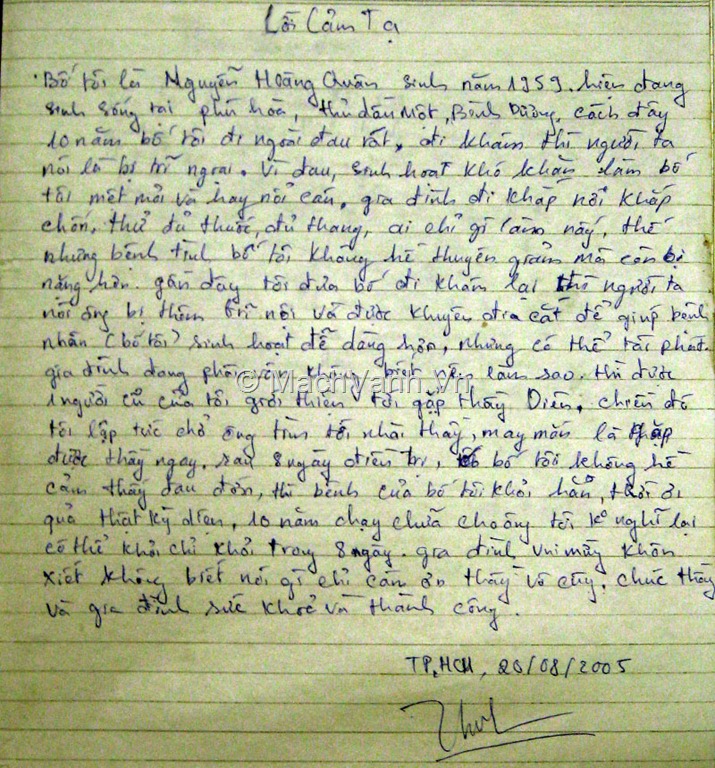 Lời Cảm Tạ
Bố tôi là Nguyễn Hoàng Quân sinh năm 1959. hiện đang
sinh sống tại phú hoà, thủ dầu một, Bình Dương, cách đây
10 năm bố tôi đi ngoài đau rát, đi khám thì người ta
nói là bị trĩ ngoại. Vì đau, sinh hoạt khó khăn làm bố
tôi mệt mỏi và hay nổi cáu, gia đình đi khắp nơi khắp
chốn, thử đủ thuốc, đủ thang, ai chỉ gì làm nấy, thế
nhưng bệnh tình bố tôi không hề thuyên giảm mà còn bị
nặng hơn. gần đây tôi đưa bố đi khám lại thì người ta
nói ông bị thêm trĩ nội và được khuyên đưa cắt để giúp bệnh
nhân (bố tôi) sinh hoạt dễ dàng hơn, nhưng có thể tái phát.
gia đình đang phân vân không biết nên làm sao. thì được
1 người cũ của tôi giới thiệu tới gặp thầy Diễn, chiều đó
tôi lập tức chở ông tìm tới nhà thầy, may mắn là gặp
được thầy ngay. sau 8 ngày điều trị, bố tôi không hề
cảm thấy đau đớn, thì bệnh của bố tôi khỏi hẳn, trời ơi
quả thật kỳ diệu, 10 năm chạy chữa cho ông tôi k° nghĩ lại
có thể khỏi chỉ khỏi trong 8 ngày. gia đình vui mừng khôn
xiết không biết nói gì chỉ cảm ơn thầy vô cùng. chúc thầy
và gia đình sức khoẻ và thành công.
TP.HCM, 20/08/2005
© MachVanh.Vn